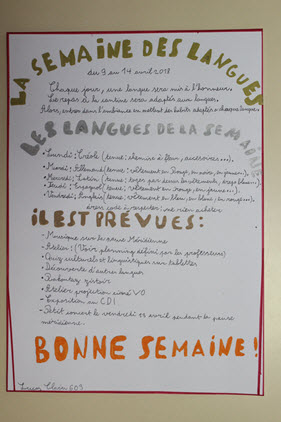 LA SEMAINE DES LANGUES
du 9 au 14 avril 2018
Chaque jour, une langue sera mise à l'honneur.
Le repas à la cantine sera adapté aux langues.
Alors, entrez dans l'ambiance en mettant des habits adaptés à chaque langue.
LES LANGUES DE LA SEMAINE
• Lundi: Créole (tenue: chemise à fleur, accessoires...).
• Mardi: Allemand (tenue: vêtement en rouge, en noir, en jaune...).
• Mercredi: Latin (tenue:
• Jeudi: Espagnol (tenue: vêtement en rouge, en jaune...).
• Vendredi: Anglais (tenue: vêtement en bleu, en blanc, en rouge...).
à respecter: ne rien acheter
IL EST PRÉVUES:
- Musique sur la pause Méridienne
- Atelier: (Voir planning défini par les professeurs)
- Quiz culturels et linguistiques sur tablettes
- Découverte d'autres langues
-
- Atelier projection ciné VO
- Exposition au CDI
- Petit concert le vendredi 13 avril pendant la pause
méridienne.
BONNE SEMAINE!
603